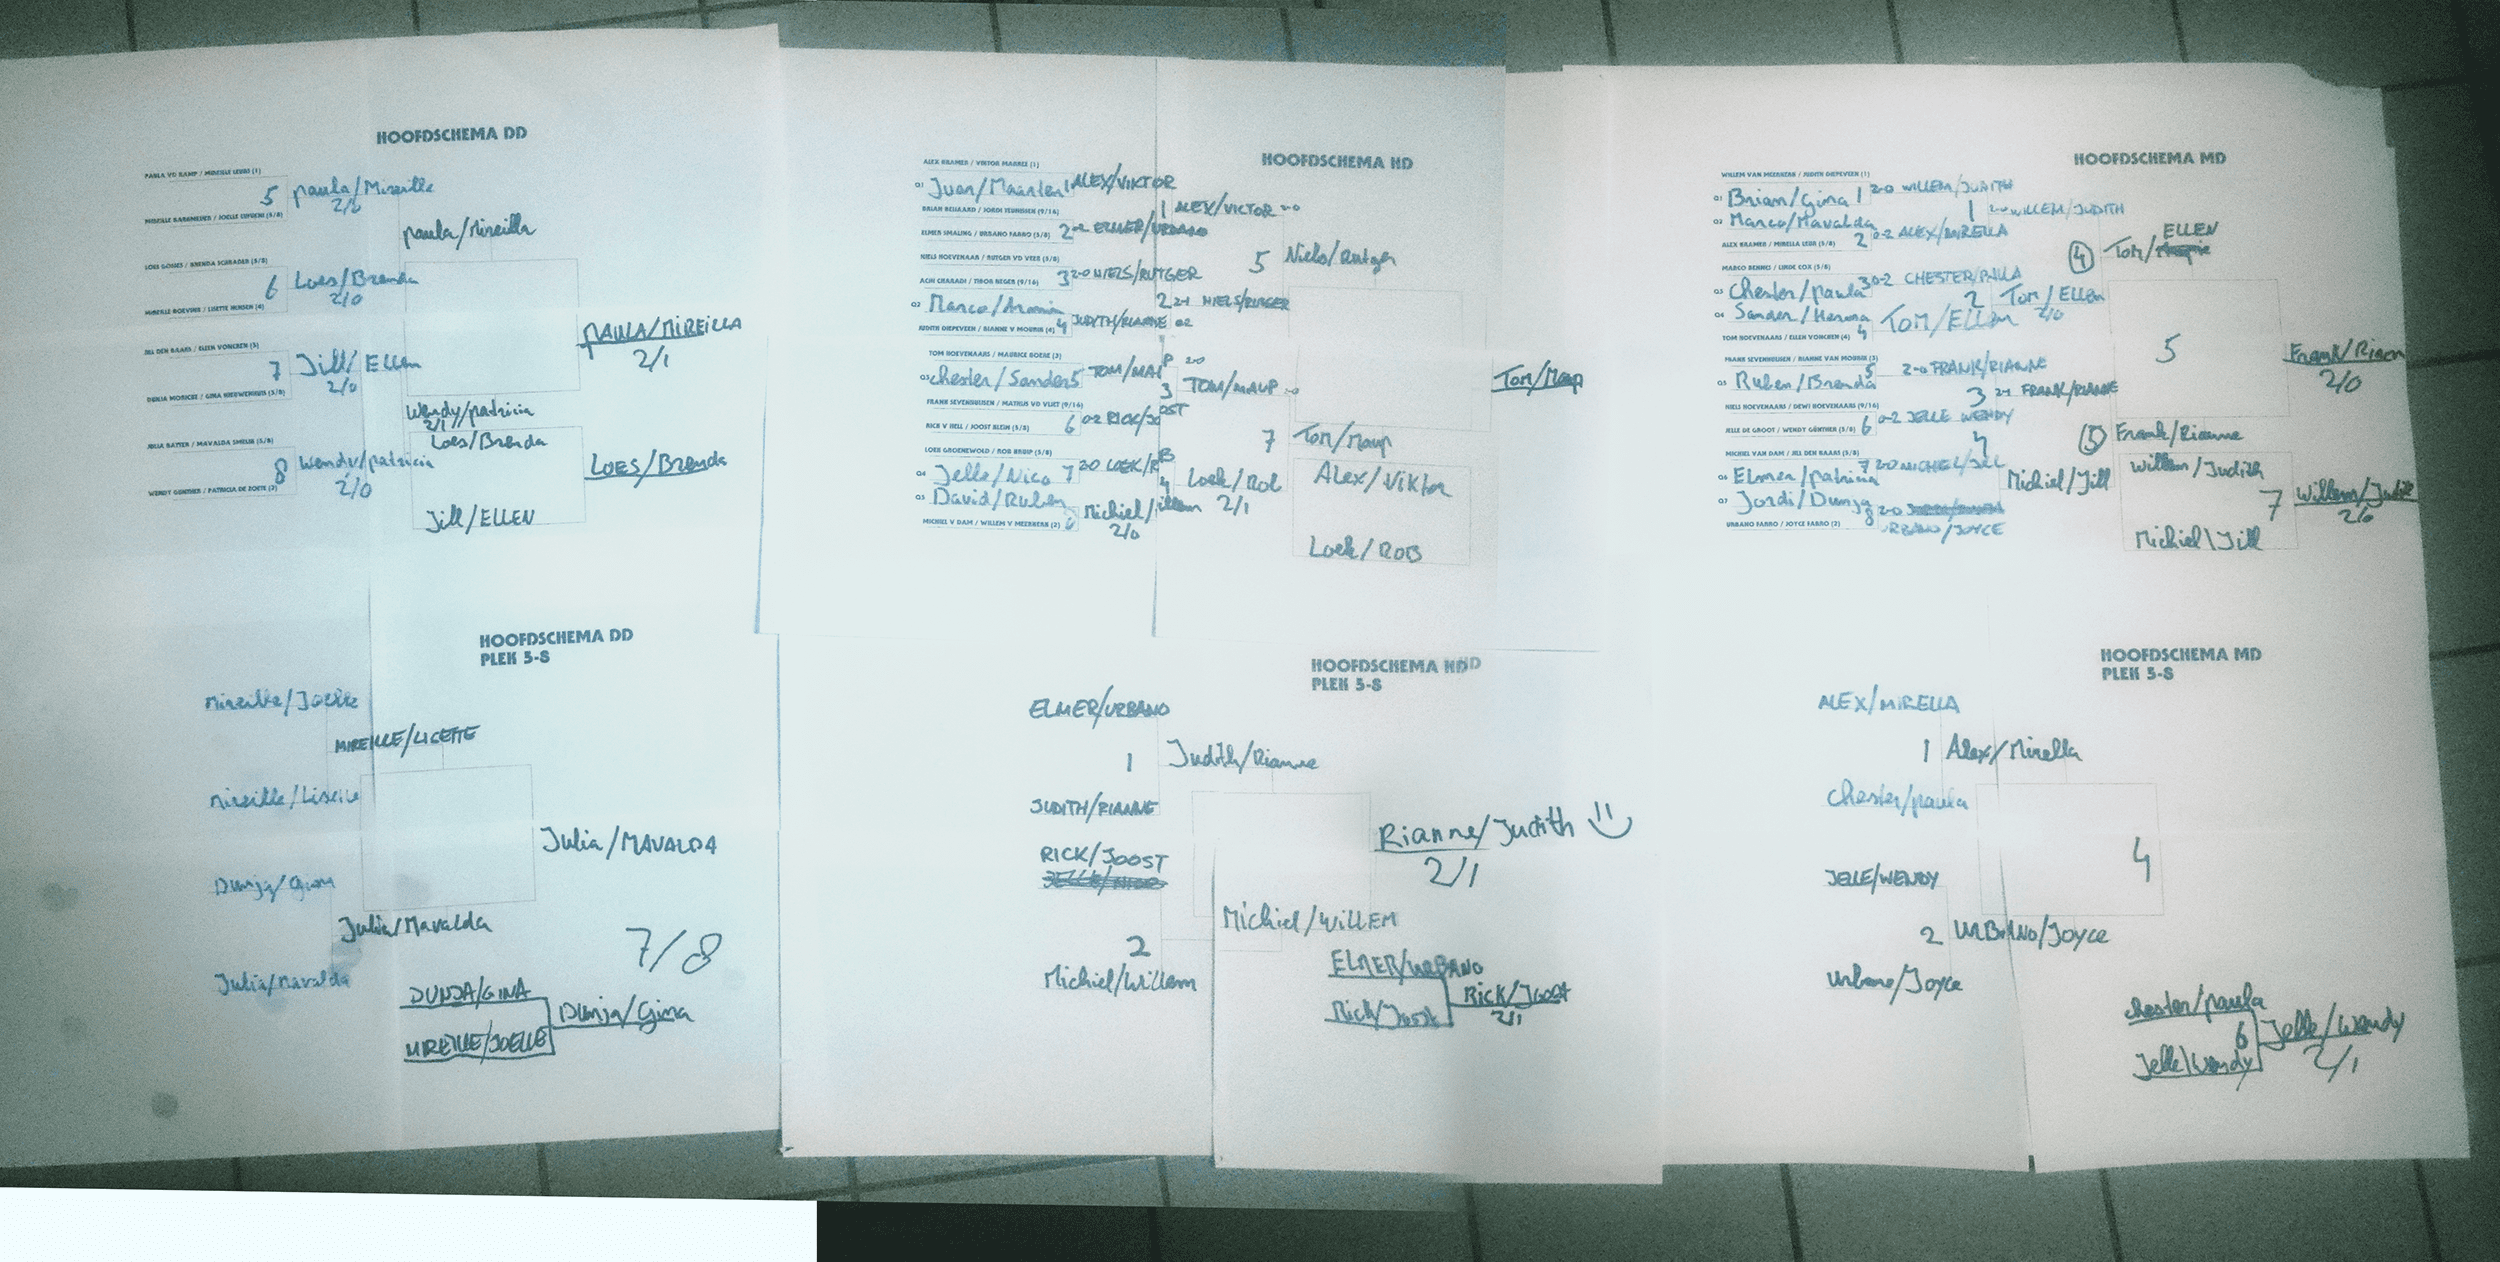 HOOFDSCHEMA DD
PAULA VD KAMP / MIREILLE
5 paula/Mireille
2/0
paula/Mireille
LOES / BRENDA SCHRADER (5/8)
6 Loes/Brenda
2/0
PAULA/MIREILLA
2/1
JILL DEN BAARS / ELLEN VONCKEN (3)
7 Jill/Ellen
2/0
Wendy/patricia
2/1
Loes/Brenda
LOES/Brenda
JULIA / MAVALDA (5/8)
8 Wendy/patricia
2/0
WENDY GÜNTHER / PATRICIA DE ZOETE (2)
Jill/ELLEN
HOOFDSCHEMA DD
PLEK 5-8
Mireille/Joelle
MIREILLE/LICETTE
Mireille/Lisette
Julia/MAVALDA
Dunja/Gina
Julia/Mavalda
7/8
Julia/Mavalda
DUNJA/GINA
Dunja/Gina
MIREILLE/JOELLE
HOOFDSCHEMA HD
ALEX KRAMER / VIKTOR (1)
Q1 Juan/Maarten 1 ALEX/VIKTOR
1 ALEX/VICTOR 2-0
ELMER SMALING / URBANO FARRO (5/8) 2 0-2 ELMER/URBANO
5 Niels/Rutger
NIELS HOEVENAAR / RUTGER VD VEER (5/8)
3 2-0 NIELS/RUTGER
2 2-1 NIELS/RUTGER
Q2 Marco/
JUDITH DIEPEVEEN / RIANNE V MOURIK (4) 4 JUDITH/RIANNE 0-2
TOM HOEVENAARS / MAURICE (3)
Q3 Chester/Sander 5 TOM/MAUP 2-0
3 TOM/MAUP
Tom/Maup
FRANK SEVENHUIJSEN / MATHIJS VD VLIET (9/16)
RICK V HELL / JOOST KLEIN (5/8) 6 0-2 RICK/JOOST
7 Tom/Maup
LOEK GROENEWOLD / ROB (5/8)
Q4 Jelle/Nico 7 2-0 LOEK/ROB
4 Loek/Rob
2/1
Alex/Viktor
Q5 David/Ruben
MICHIEL V DAM / WILLEM V MEERKERK (2) 8 Michiel/Willem
2/0
Loek/ROB
HOOFDSCHEMA HD
PLEK 5-8
ELMER/URBANO
1 Judith/Rianne
JUDITH/RIANNE
Rianne/Judith
2/1
RICK/JOOST
Michiel/WILLEM
2
Michiel/Willem
ELMER/URBANO
Rick/Joost
Rick/Joost
2/1
HOOFDSCHEMA MD
WILLEM VAN MEERKERK / JUDITH DIEPEVEEN (1)
Q1 Brian/Gina 1 2-0 WILLEM/JUDITH
1 2-0 WILLEM/JUDITH
Q2 Marco/Mavalda
ALEX KRAMER / MIRELLA LEUR (5/8) 2 0-2 ALEX/MIRELLA
4 Tom/ELLEN
MARCO BENNES / LINDE COX (5/8)
Q3 Chester/paula 3 0-2 CHESTER/PAULA
2 Tom/ELLEN
2/0
Q4 Sander/
4 TOM/ELLEN
TOM HOEVENAARS / ELLEN VONCKEN (4)
5
Frank/Riann
2/0
FRANK SEVENHUIJSEN / RIANNE VAN MOURIK (3)
Q5 Ruben/Brenda 5 2-0 FRANK/RIANNE
3 2-1 FRANK/RIANNE
NIELS HOEVENAARS / DEWI HOEVENAARS (9/16)
JELLE DE GROOT / WENDY GÜNTHER (5/8) 6 0-2 JELLE WENDY
5 Frank/Rianne
MICHIEL VAN DAM / JILL DEN BAARS (5/8)
Q6 Elmer/patricia 7 2-0 MICHIEL/JILL
4 Michiel/Jill
Willem/Judith
Q7 Jordi/Dunja
URBANO FARRO / JOYCE FARRO (2) 8 2-0
URBANO/JOYCE
7 Willem/Judit
2/0
Michiel/Jill
HOOFDSCHEMA MD
PLEK 5-8
ALEX/MIRELLA
1 Alex/Mirella
Chester/paula
4
JELLE/WENDY
2 URBANO/JOYCE
Urbano/Joyce
Chester/paula
6 Jelle/Wendy
2/1
Jelle/Wendy